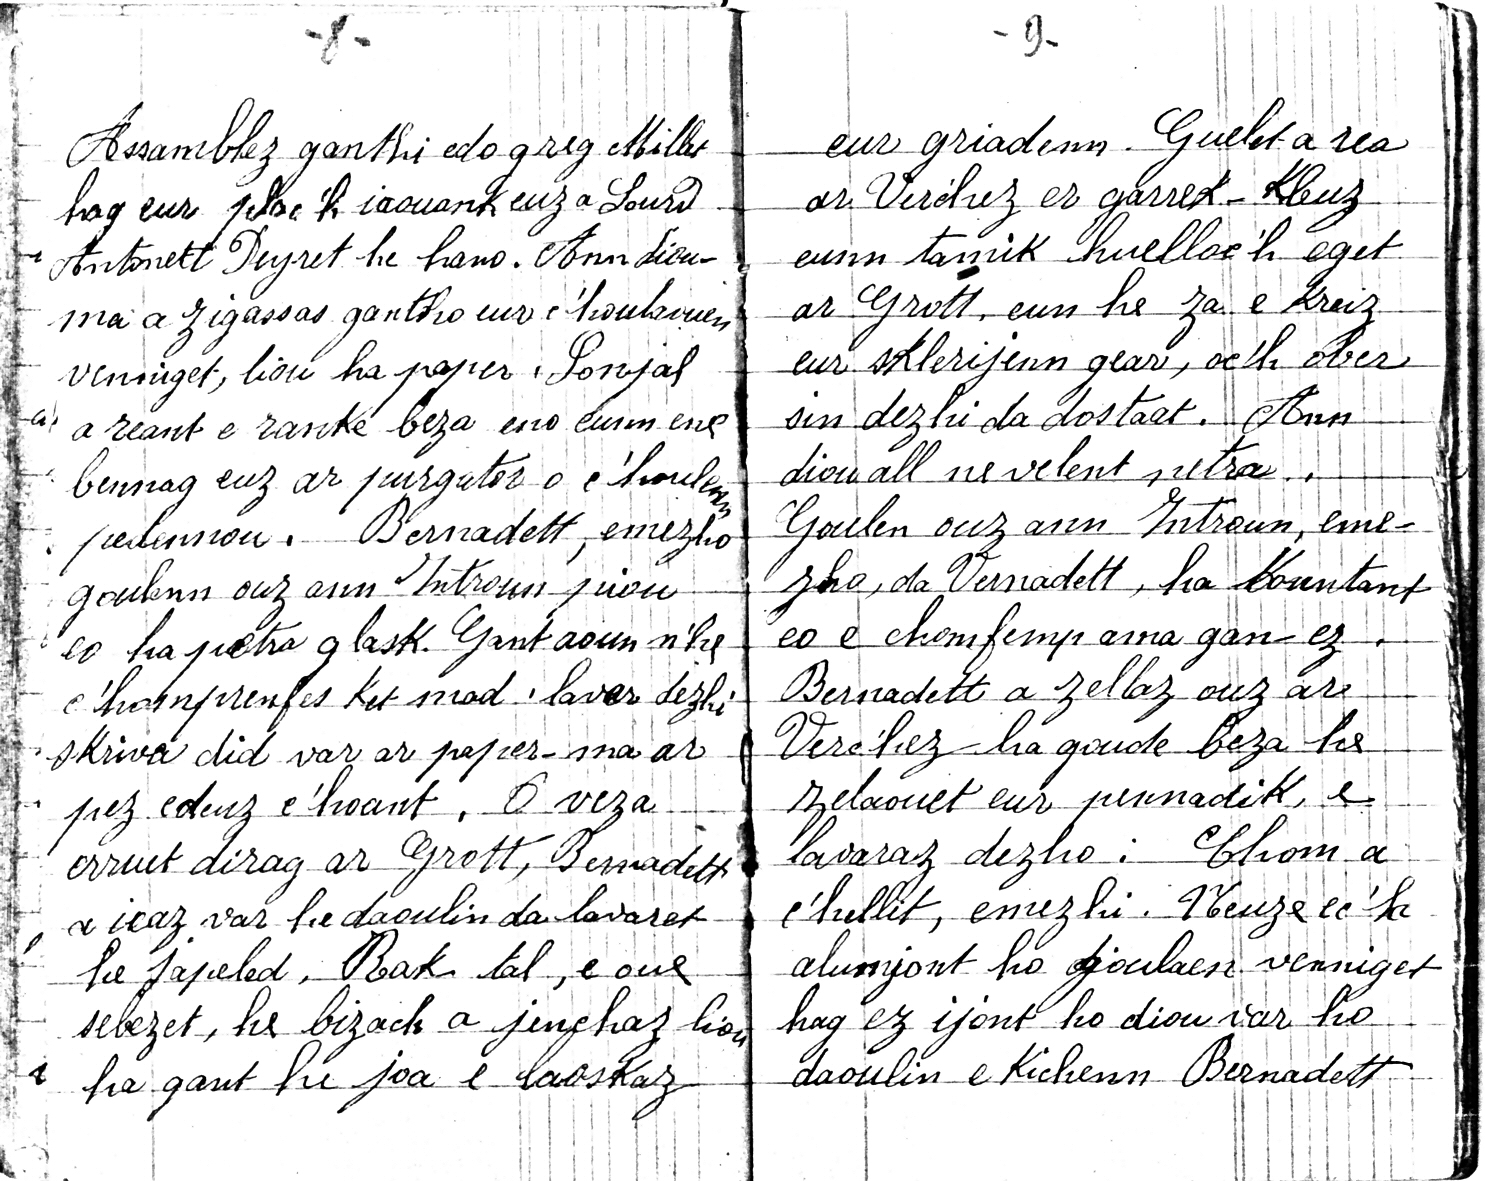 - 8 -
Assamblez ganthi edo greg Millet
hag eur plac'h iaouank euz a Lourd
Antonett Peyret he hano. Ann diou-
ma a zigassas gantho eur c'houlaouen
venniget, liou ha paper. Sonjal
a reant e ranke beza eno eunn ene
bennag euz ar purgator o c'houlenn
pedennou. Bernadett, emezho
goulenn ouz ann Introun piou
eo ha petra glask. Gant aoun n'he
c'homprenfes ket mad, lavar dezhi
skriva did var ar paper-ma ar
pez edeuz c'hoant. O veza
erruet dirag ar Grott, Bernadett
a ieaz var he daoulin da lavaret
he japeled. Rak tal, e oue
sebezet, he bizach a jenchaz liou
ha gant he joa e laoskaz
- 9 -
eur griadenn. Guelet a rea
ar Verc'hez er garrek-kleuz
eunn tamik huelloc'h eget
ar Grott, eun he za e kreiz
eur sklerijenn gear, oc'h ober
sin dezhi da dostaat. Ann
diou all ne velent netra.
Goulen ouz ann Introun, eme-
zho, da Vernadett, ha kountant
eo e chomfemp ama gan-ez.
Bernadett a zellaz ouz ar
Verc'hez ha goude beza he
zelaouet eur pennadik, e
lavaraz dezho: Chom a
c'hellit, emezhi. Neuze ec'h
alumjont ho goulaen venniget
hag ez ijont ho diou var ho
daoulin e kichenn Bernadett